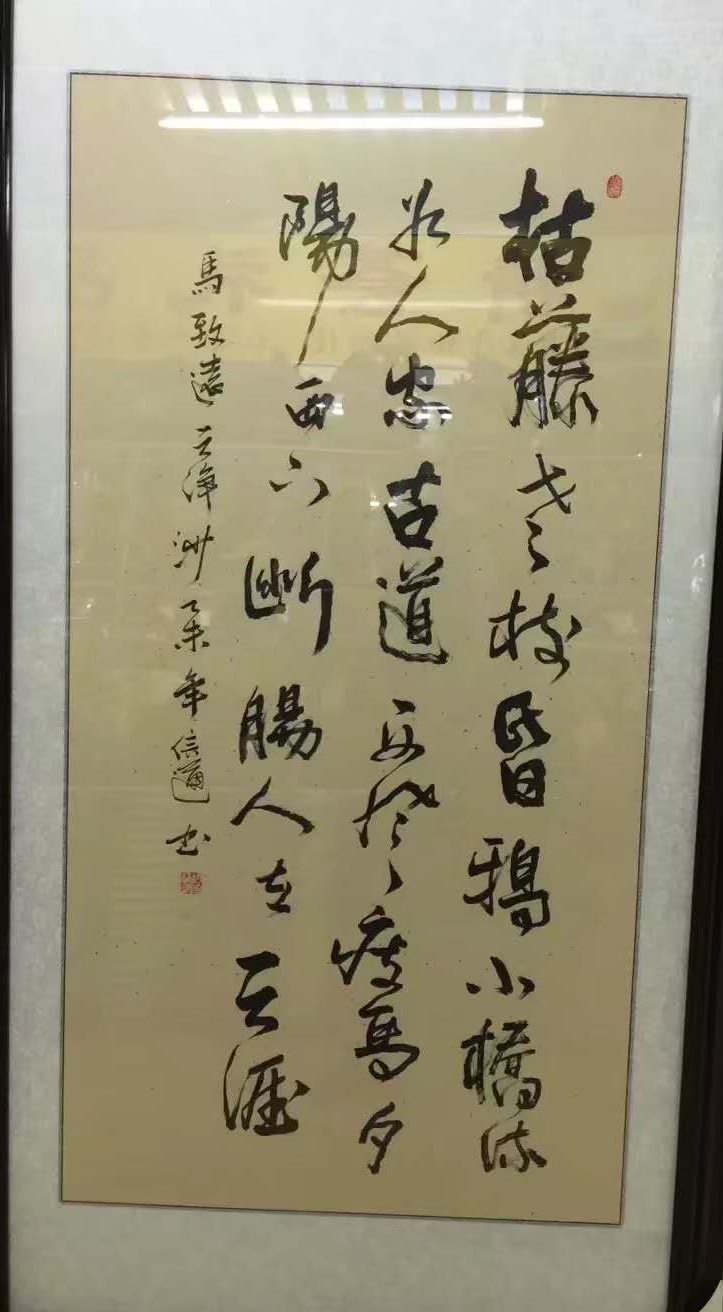 枯藤老樹昬鴉小橋流
水人家古道西風瘦馬夕
陽西下斷腸人在天涯
馬致遠天淨沙乙未年信書